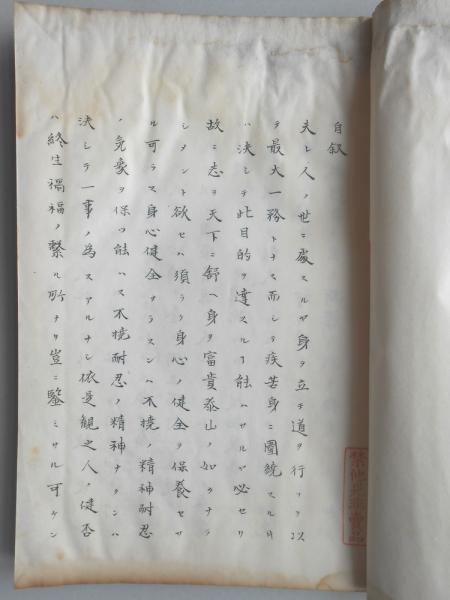 自叙
夫レ人ノ世ニ處スルヤ身ヲ立テ道ヲ行フヲ以
テ最大一務トナス而シテ疾苦身ニ圍繞スル時
ハ決シテ此目的ヲ達スルヿ能ハサルヤ必セリ
故ニ志ヲ天下ニ舒ヘ身ヲ富貴泰山ノ如クナラ
シメント欲セハ須ラク身心ノ健全ヲ保養セサ
ル可ラス身心健全ナラスンハ不撓ノ精神耐忍
ノ気象ヲ保ツ能ハス不撓耐忍ノ精神ナクンハ
決シテ一事ノ為スアルナシ依是観之人ノ健否
ハ終生禍福ノ繋ル所ナリ豈ニ鑒ミサル可ケン